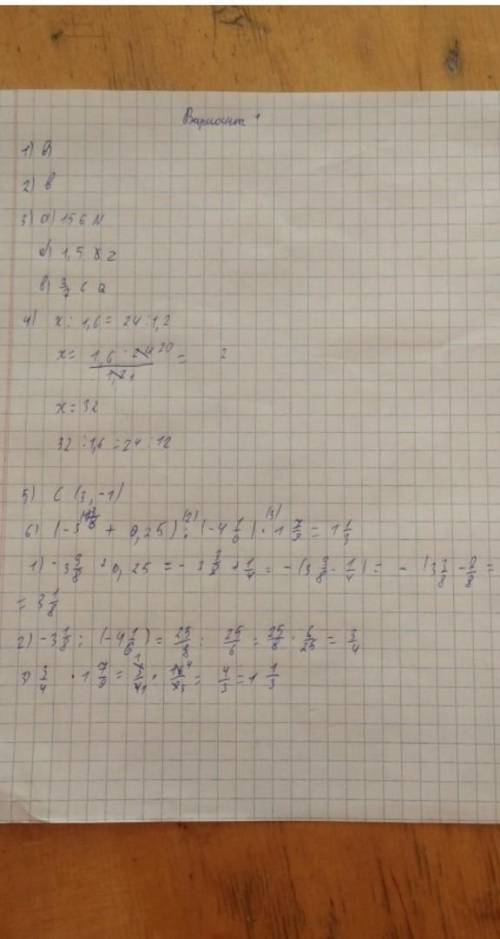 Вариант 1
1) в)
2) в
3) а) 156 N
б) 1,5 8 z
в) 3/7 с а
4) x : 1,6 = 24 : 1,2
x = 1,6 · 24 20 / 1,2 1 = 2
x = 32
32 : 1,6 = 24 : 12
5) C (3, -1)
6) (-3 3/8 + 0,25) (2) : (-4 1/6) (3) · 1 7/9 = 1 1/3
1) -3 3/8 + 0,25 = -3 3/8 + 1/4 = -(3 3/8 - 1/4) = - (3 3/8 - 2/8 =
= 3 1/8
2) -3 1/8 : (-4 1/6) = 25/8 : 25/6 = 25/8 · 6/25 = 3/4
3) 3/4 · 1 7/9 = 4/3 = 1 1/3